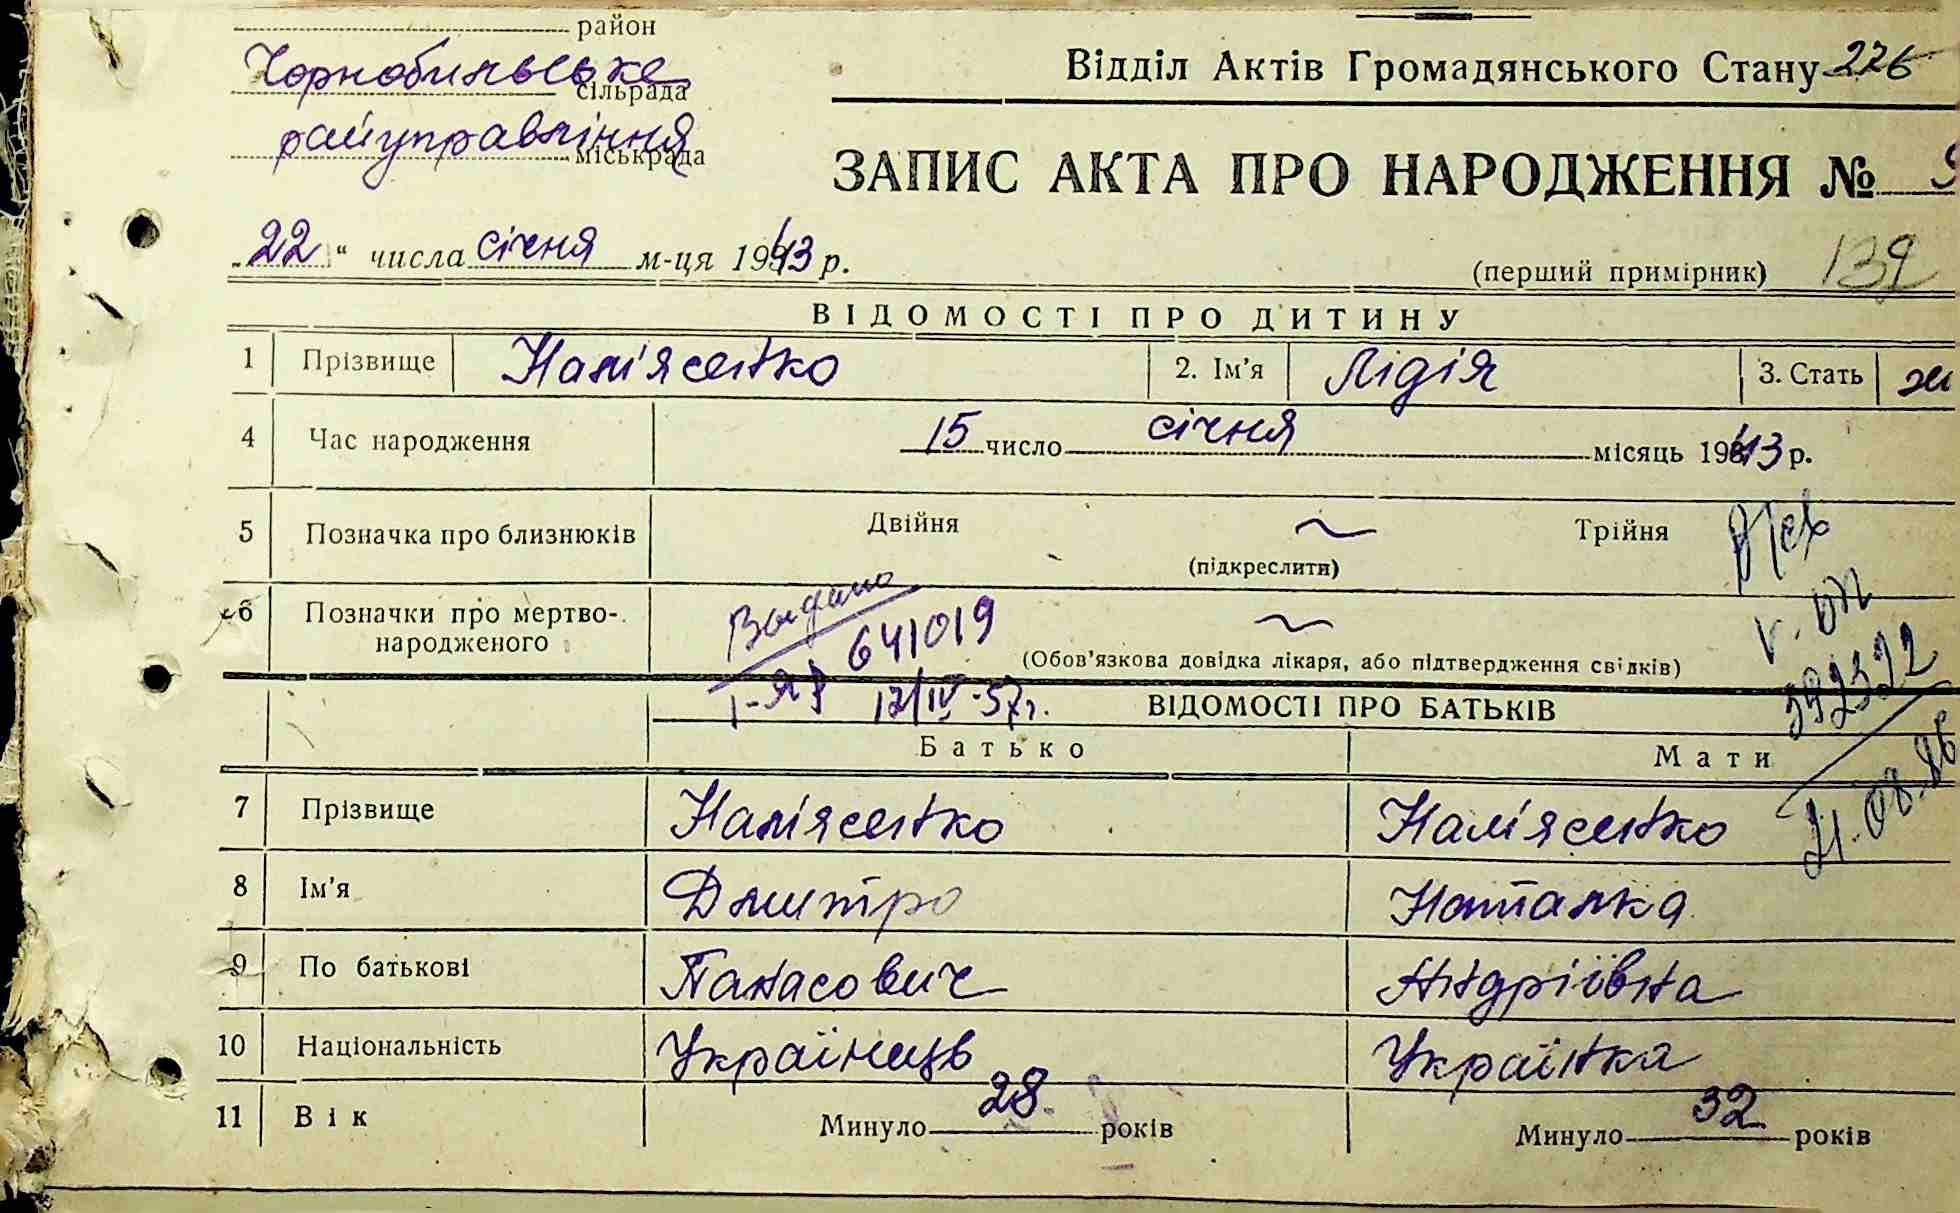 район
Відділ Актів Громадянського Стану 226
Чорнобильське
сільрада
райуправління
міськрада
ЗАПИС АКТА ПРО НАРОДЖЕННЯ №
„22“ числа січня м-ця 1943 р.
(перший примірник) 139
ВІДОМОСТІ ПРО ДИТИНУ
1 Прізвище Нам'ясенко 2. Ім'я Лідія 3. Стать ж
4 Час народження 15 число січня місяць 1943 р.
5 Позначка про близнюків Двійня ~ Трійня
(підкреслити)
6 Позначки про мертво-
народженого
Выдано
641019
(Обов'язкова довідка лікаря, або підтвердження свідків)
12/IV-57г.
V. ОП
392322
21.08.86
ВІДОМОСТІ ПРО БАТЬКІВ
Батько Мати
7 Прізвище Нам'ясенко Нам'ясенко
8 Ім'я Дмитро Наталка
9 По батькові Панасович Андріївна
10 Національність Українець Українка
11 Вік Минуло 28 років Минуло 32 років